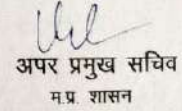 अपर प्रमुख सचिव
म.प्र. शासन